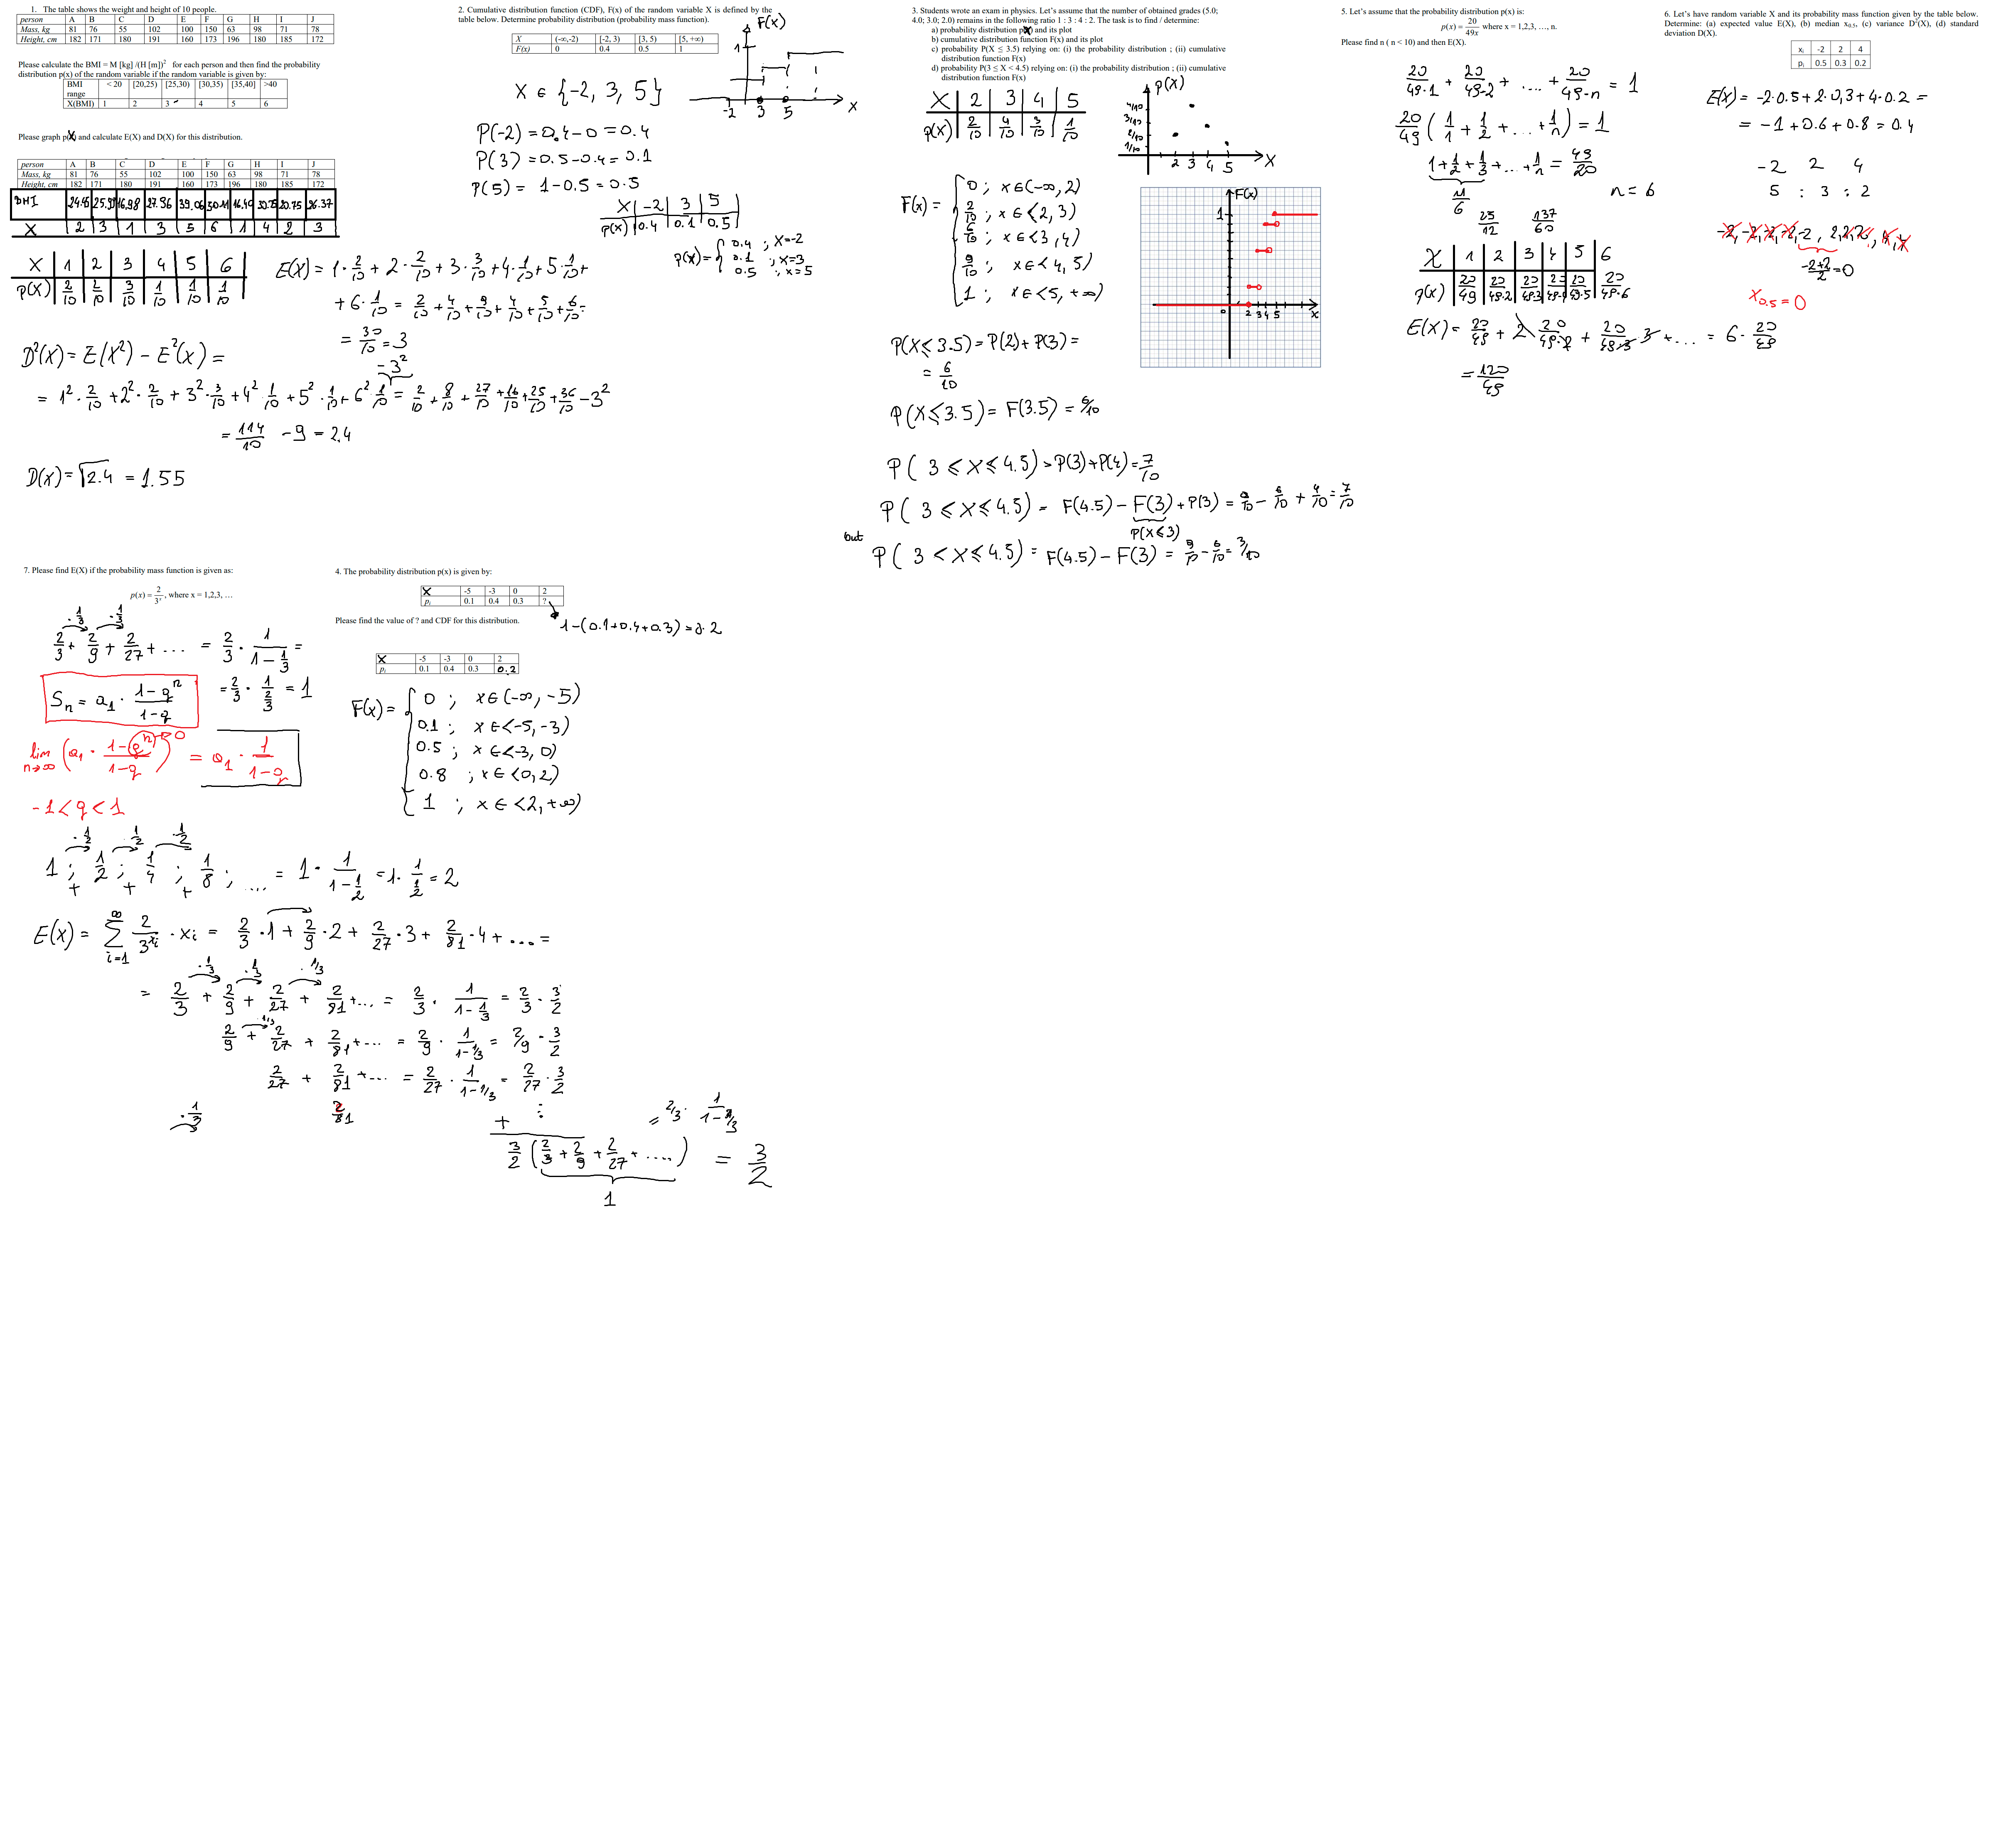 1. The table shows the weight and height of 10 people.
person A B C D E F G H I J
Mass, kg 81 76 55 102 100 150 63 98 71 78
Height, cm 182 171 180 191 160 173 196 180 185 172
Please calculate the BMI = M [kg] /(H [m])² for each person and then find the probability
distribution p(x) of the random variable if the random variable is given by:
BMI range < 20 [20,25) [25,30) [30,35) [35,40] >40
X(BMI) 1 2 3 4 5 6
Please graph p(X) and calculate E(X) and D(X) for this distribution.
person A B C D E F G H I J
Mass, kg 81 76 55 102 100 150 63 98 71 78
Height, cm 182 171 180 191 160 173 196 180 185 172
BMI 25.99 16.98 27.96 39.06 50.11 16.40 20.75 26.37
X 2 3 1 3 5 6 1 4 2 3
X 1 2 3 4 5 6
p(X) 2/10 2/10 3/10 1/10 1/10 1/10
E(X) = 1·2/10 + 2·2/10 + 3·3/10 + 4·1/10 + 5·1/10 +
+ 6·1/10 = 2/10 + 4/10 + 9/10 + 4/10 + 5/10 + 6/10 =
= 30/10 = 3
D²(X) = E(X²) − E²(X) =
−3²
= 1²·2/10 + 2²·2/10 + 3²·3/10 + 4²·1/10 + 5²·1/10 + 6²·1/10 = 2/10 + 8/10 + 27/10 + 16/10 + 25/10 + 36/10 − 3²
= 114/10 − 9 = 2.4
D(X) = √2.4 = 1.55
2. Cumulative distribution function (CDF), F(x) of the random variable X is defined by the
table below. Determine probability distribution (probability mass function).
X (-∞,-2) [-2, 3) [3, 5) [5, +∞)
F(x) 0 0.4 0.5 1
F(x)
1
-2 3 5 X
X ∈ {-2, 3, 5}
P(-2) = 0.4 − 0 = 0.4
P(3) = 0.5 − 0.4 = 0.1
P(5) = 1 − 0.5 = 0.5
X -2 3 5
p(X) 0.4 0.1 0.5
p(X) = { 0.4 ; X=-2
0.1 ; X=3
0.5 ; x=5
3. Students wrote an exam in physics. Let's assume that the number of obtained grades (5.0;
4.0; 3.0; 2.0) remains in the following ratio 1 : 3 : 4 : 2. The task is to find / determine:
a) probability distribution p(X) and its plot
b) cumulative distribution function F(x) and its plot
c) probability P(X ≤ 3.5) relying on: (i) the probability distribution ; (ii) cumulative
distribution function F(x)
d) probability P(3 ≤ X < 4.5) relying on: (i) the probability distribution ; (ii) cumulative
distribution function F(x)
X 2 3 4 5
p(X) 2/10 4/10 3/10 1/10
p(X)
4/10
3/10
2/10
1/10
2 3 4 5 X
F(x) = { 0 ; x∈(-∞, 2)
2/10 ; x∈<2, 3)
6/10 ; x∈<3, 4)
9/10 ; x∈<4, 5)
1 ; x∈<5, +∞)
F(x)
1
0 2 3 4 5 X
P(X ≤ 3.5) = P(2) + P(3) =
= 6/10
P(X ≤ 3.5) = F(3.5) = 6/10
P( 3 ≤ X ≤ 4.5) = P(3) + P(4) = 7/10
P( 3 ≤ X ≤ 4.5) = F(4.5) − F(3) + P(3) = 9/10 − 6/10 + 4/10 = 7/10
P(X ≤ 3)
but
P( 3 < X ≤ 4.5) = F(4.5) − F(3) = 9/10 − 6/10 = 3/10
5. Let's assume that the probability distribution p(x) is:
p(x) = 20/49x where x = 1,2,3, …, n.
Please find n ( n < 10) and then E(X).
20/49·1 + 20/49·2 + .... + 20/49·n = 1
20/49 ( 1/1 + 1/2 + ... + 1/n ) = 1
1 + 1/2 + 1/3 + ... + 1/n = 49/20
11/6
n = 6
25/12 137/60
X 1 2 3 4 5 6
p(X) 20/49 20/49·2 20/49·3 20/49·4 20/49·5 20/49·6
E(X) = 20/49 + 2 20/49·2 + 20/49·3 ·3 + ... = 6 · 20/49
= 120/49
6. Let's have random variable X and its probability mass function given by the table below.
Determine: (a) expected value E(X), (b) median x0.5, (c) variance D²(X), (d) standard
deviation D(X).
xi -2 2 4
pi 0.5 0.3 0.2
E(X) = −2·0.5 + 2·0,3 + 4·0.2 =
= −1 + 0.6 + 0.8 = 0.4
-2 2 4
5 : 3 : 2
-2, -2, -2, -2, -2, 2, 2, 2, 4, 4
-2+2/2 = 0
x0.5 = 0
7. Please find E(X) if the probability mass function is given as:
p(x) = 2/3ˣ, where x = 1,2,3, …
·1/3 ·1/3
2/3 + 2/9 + 2/27 + ... = 2/3 · 1/(1 − 1/3) =
= 2/3 · 1/(2/3) = 1
Sn = a1 · (1−qⁿ)/(1−q)
lim n→∞ (a1 · (1−qⁿ)/(1−q)) = a1 · 1/(1−q)
0
-1 < q < 1
·1/2 ·1/2 ·1/2
1 ; 1/2 ; 1/4 ; 1/8 ; .... = 1 · 1/(1 − 1/2) = 1 · 1/(1/2) = 2
+ + +
E(X) = ∞ Σ i=1 2/3^xi · xi = 2/3 · 1 + 2/9 · 2 + 2/27 · 3 + 2/81 · 4 + .... =
·1/3 ·1/3 ·1/3
= 2/3 + 2/9 + 2/27 + 2/81 + ... = 2/3 · 1/(1 − 1/3) = 2/3 · 3/2
·1/3
2/9 + 2/27 + 2/81 + ... = 2/9 · 1/(1 − 1/3) = 2/9 · 3/2
2/27 + 2/81 + ... = 2/27 · 1/(1 − 1/3) = 2/27 · 3/2
·1/3 2/81 + ⋮ = 2/3 · 1/(1 − 1/3)
3/2 ( 2/3 + 2/9 + 2/27 + .... ) = 3/2
1
4. The probability distribution p(x) is given by:
X -5 -3 0 2
pi 0.1 0.4 0.3 ?
Please find the value of ? and CDF for this distribution.
1−(0.1+0.4+0.3) = 0.2
X -5 -3 0 2
pi 0.1 0.4 0.3 0.2
F(x) = { 0 ; x∈(-∞, -5)
0.1 ; x∈<-5, -3)
0.5 ; x∈<-3, 0)
0.8 ; x∈<0, 2)
1 ; x∈<2, +∞)